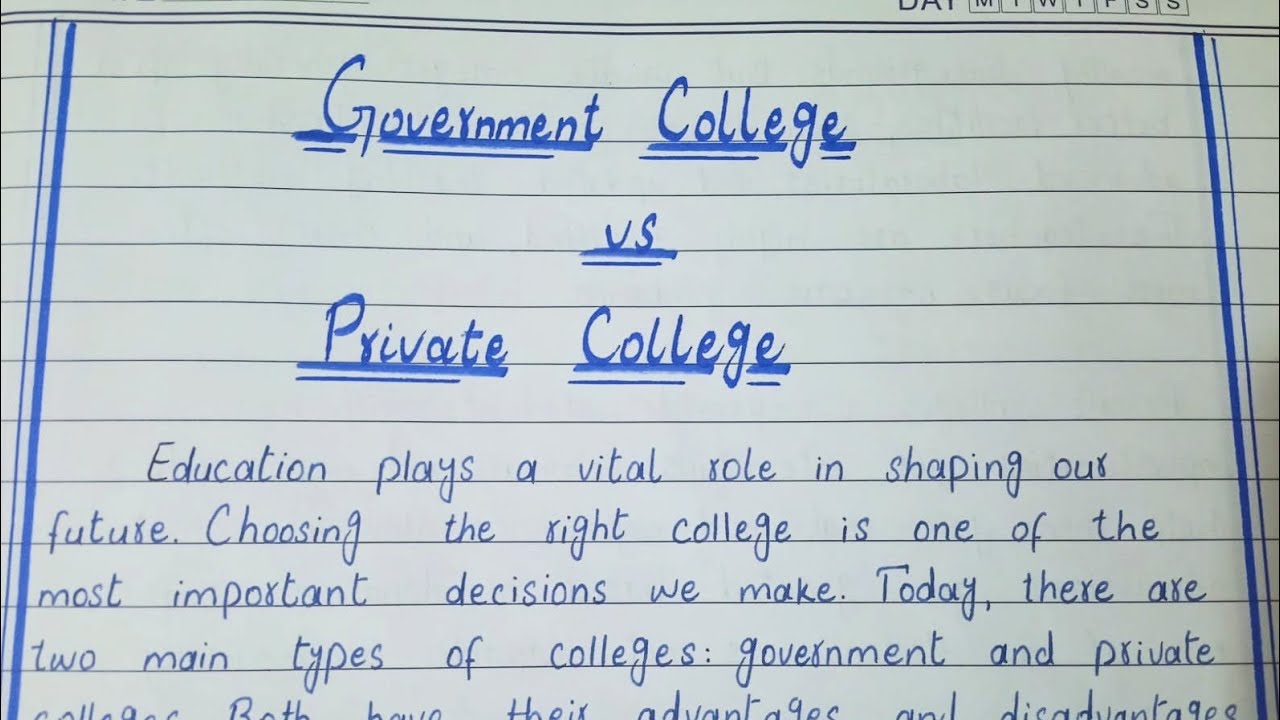 DAY M T W T F S S
Government College
vs
Private College
Education plays a vital role in shaping our
future. Choosing the right college is one of the
most important decisions we make. Today, there are
two main types of colleges: government and private
colleges. Both have their advantages and disadvantages